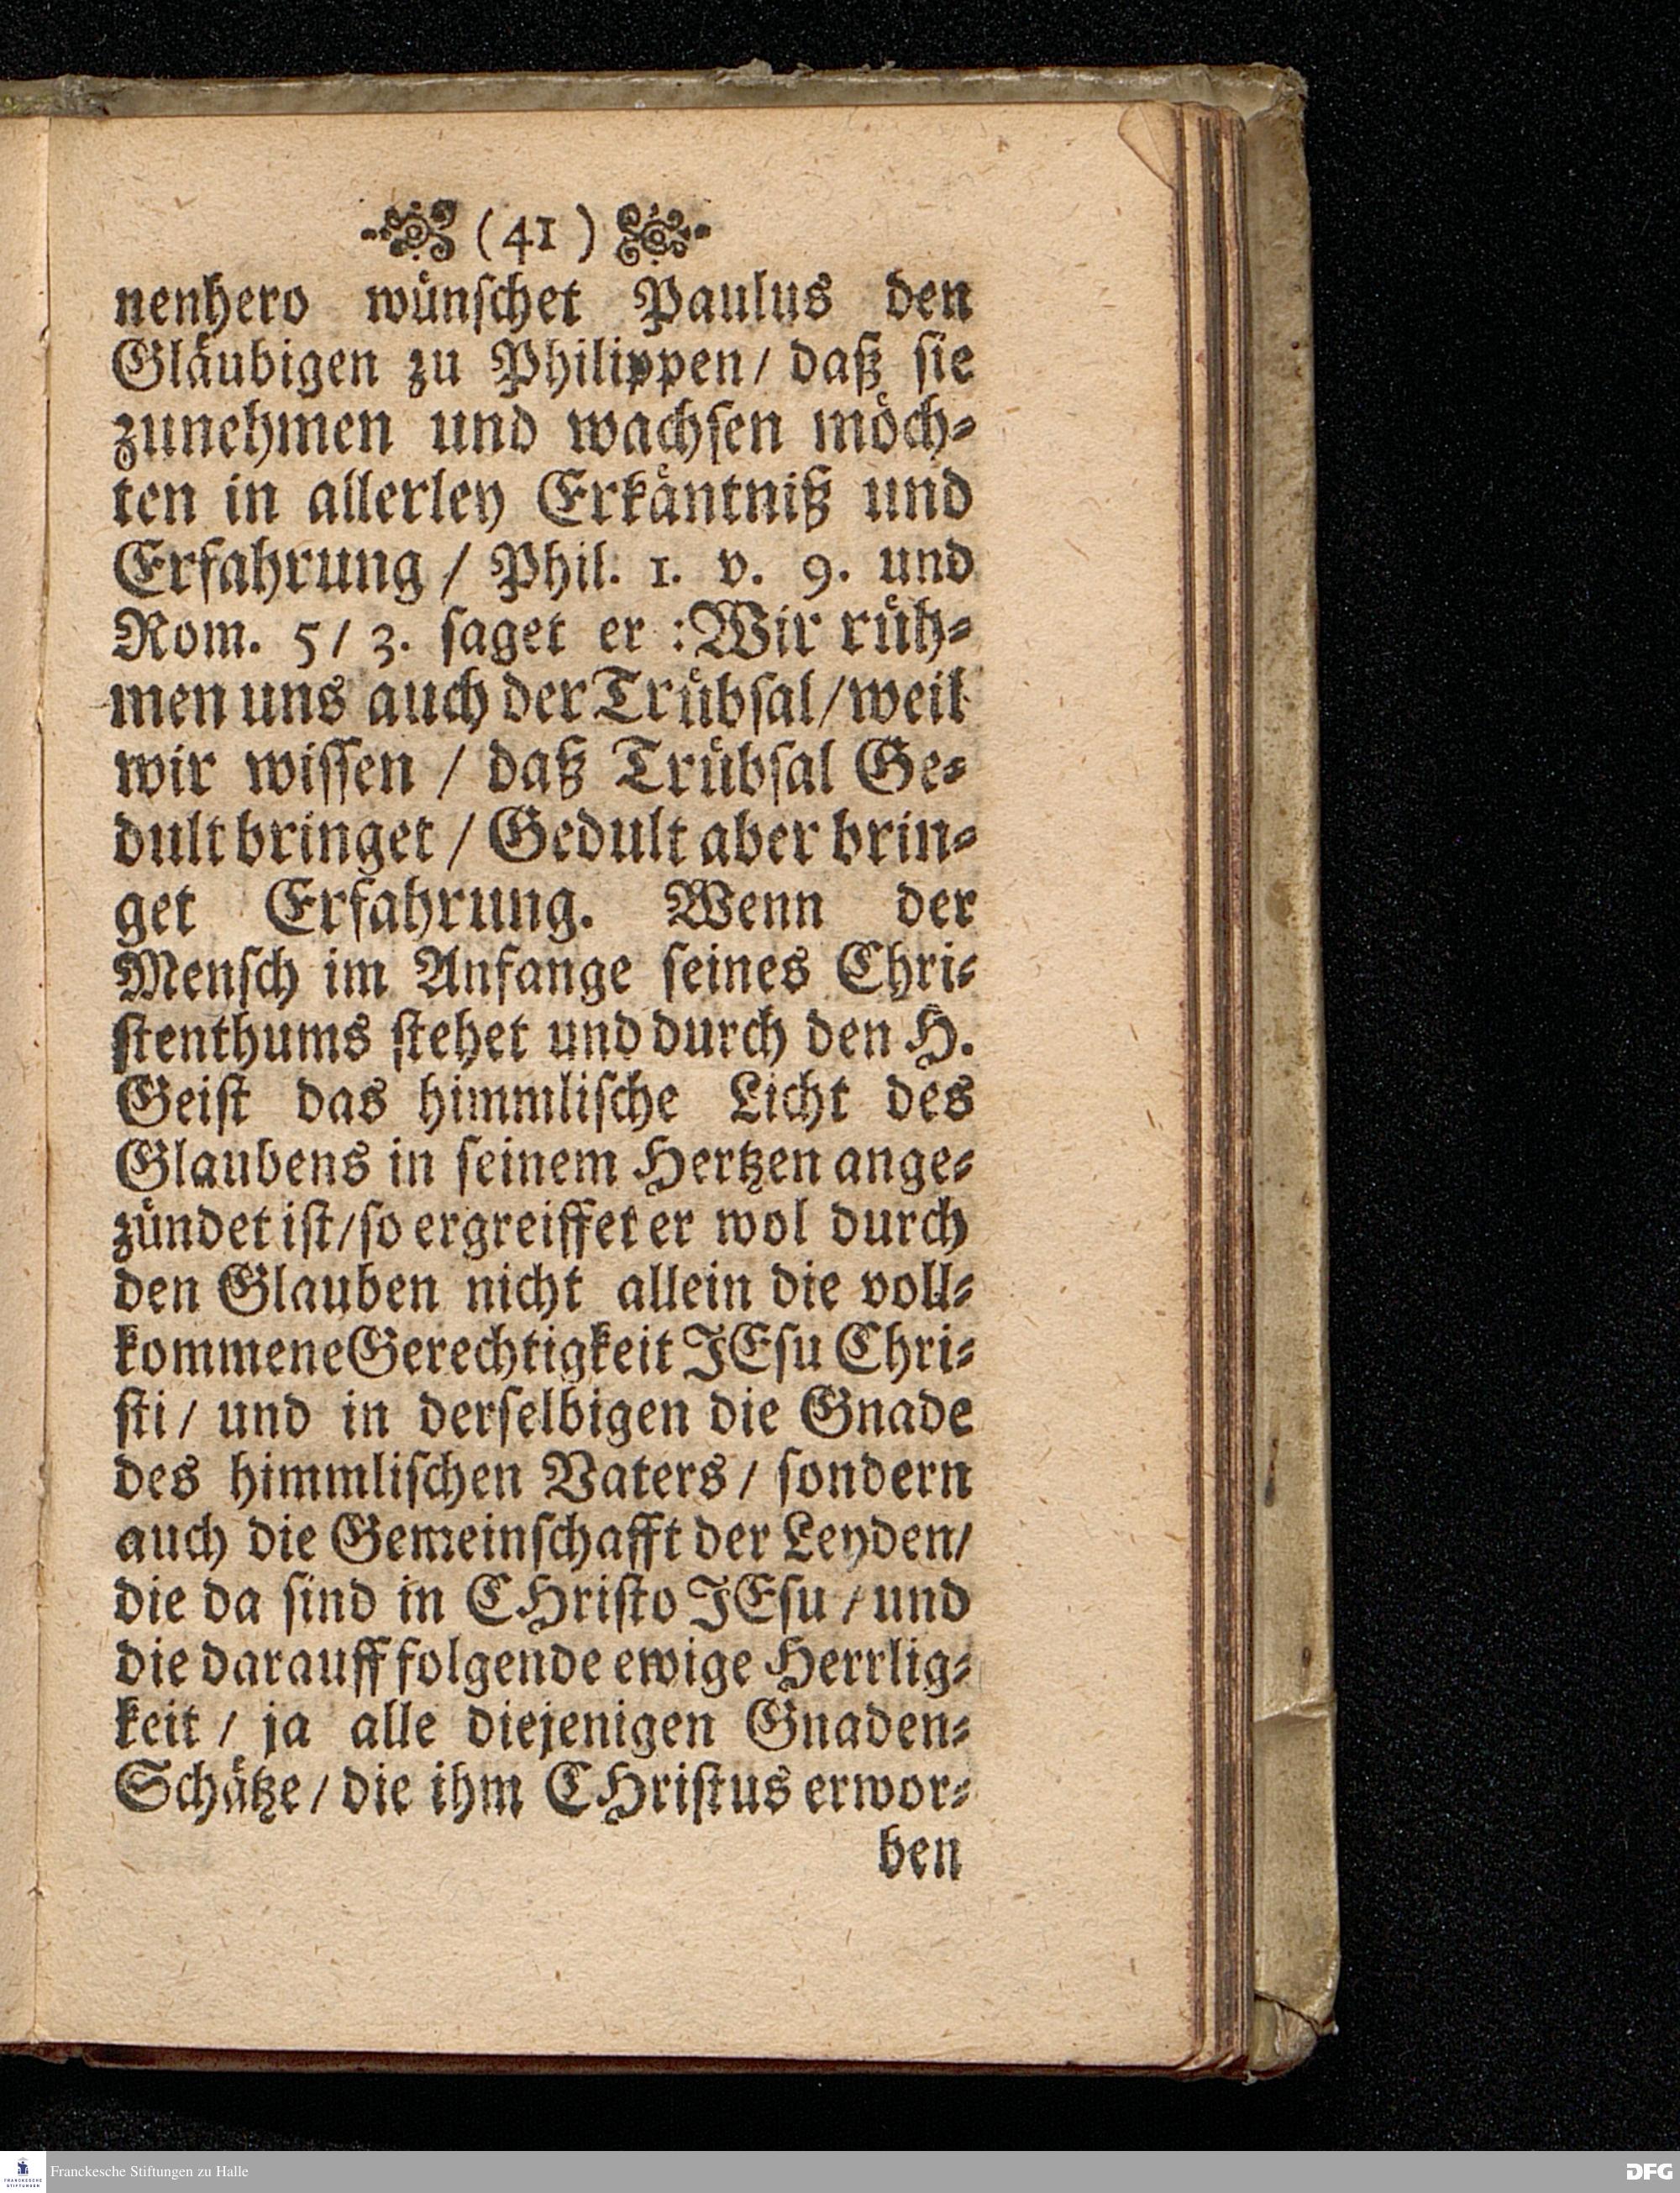 (41)
nenhero wünſchet Paulus den
Gläubigen zu Philippen/ daß ſie
zunehmen und wachſen möch-
ten in allerley Erkäntniß und
Erfahrung / Phil. 1. v. 9. und
Rom. 5/ 3. ſaget er : Wir rüh-
men uns auch der Trübſal/ weil
wir wiſſen / daß Trübſal Ge-
dult bringet / Gedult aber brin-
get Erfahrung. Wenn der
Menſch im Anfange ſeines Chri-
ſtenthums ſtehet und durch den H.
Geiſt das himmliſche Licht des
Glaubens in ſeinem Hertzen ange-
zündet iſt/ ſo ergreiffet er wol durch
den Glauben nicht allein die voll-
kommene Gerechtigkeit JEſu Chri-
ſti/ und in derſelbigen die Gnade
des himmliſchen Vaters/ ſondern
auch die Gemeinſchafft der Leyden/
die da ſind in CHriſto JEſu / und
die darauff folgende ewige Herrlig-
keit / ja alle diejenigen Gnaden-
Schätze/ die ihm CHriſtus erwor-
ben
Franckesche Stiftungen zu Halle
FRANCKESCHE
STIFTUNGEN
DFG